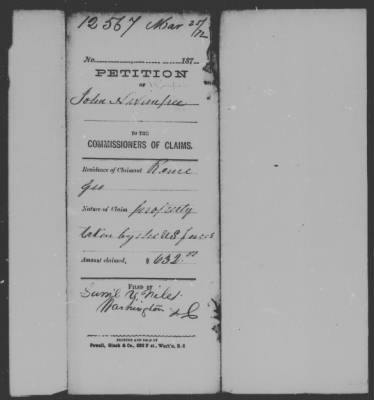 12567 Mar 25/72
No. 187
PETITION
OF
John
TO THE
COMMISSIONERS OF CLAIMS.
Residence of Claimant Rome
Geo
Nature of Claim property
taken by the US forces
Amount claimed, $ 632.00
FILED BY
Saml Y. Niles
Washington DC
PRINTED AND SOLD BY
Powell, Ginck & Co., 632 F st., Wash'n, D.C